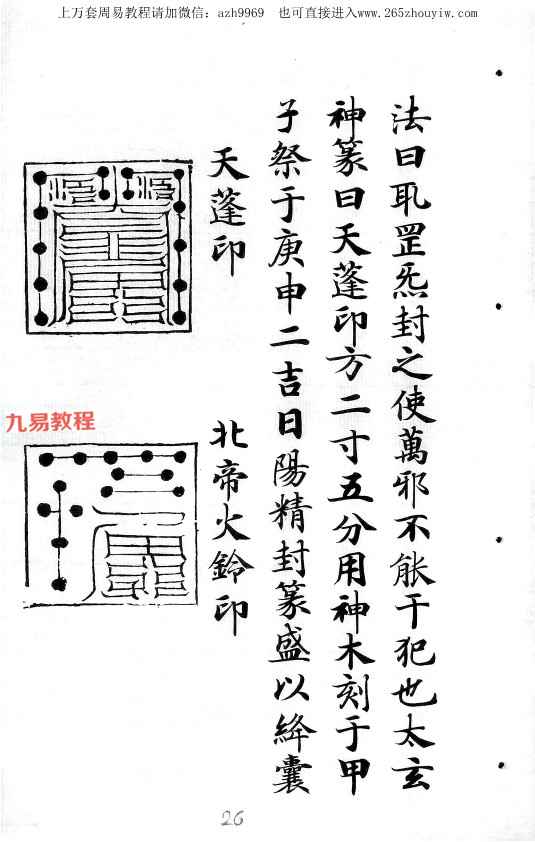 上万套周易教程请加微信：azh9969　也可直接进入www.265zhouyiw.com
法曰取罡炁封之使萬邪不能干犯也太玄
神篆曰天蓬印方二寸五分用神木刻于甲
子祭于庚申二吉日陽精封篆盛以絳囊
天蓬印
北帝火鈴印
九易教程
26